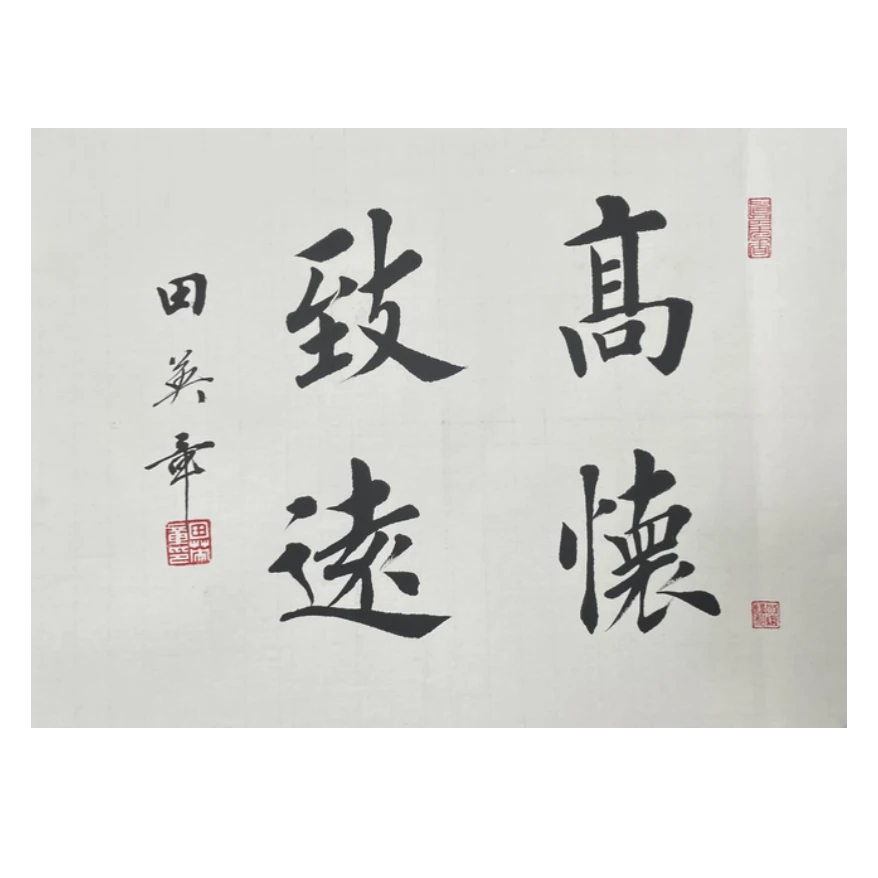 高懷
致遠
田英章
田英章印